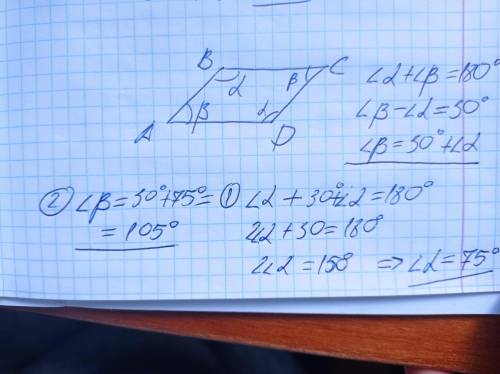 B C
α β
β α
A D
∠α+∠β=180°
∠β-∠α=30°
∠β=30°+∠α
② ∠β=30°+75°=
=105°
① ∠α+30°+∠α=180°
2∠α+30=180°
2∠α=150 => ∠α=75°